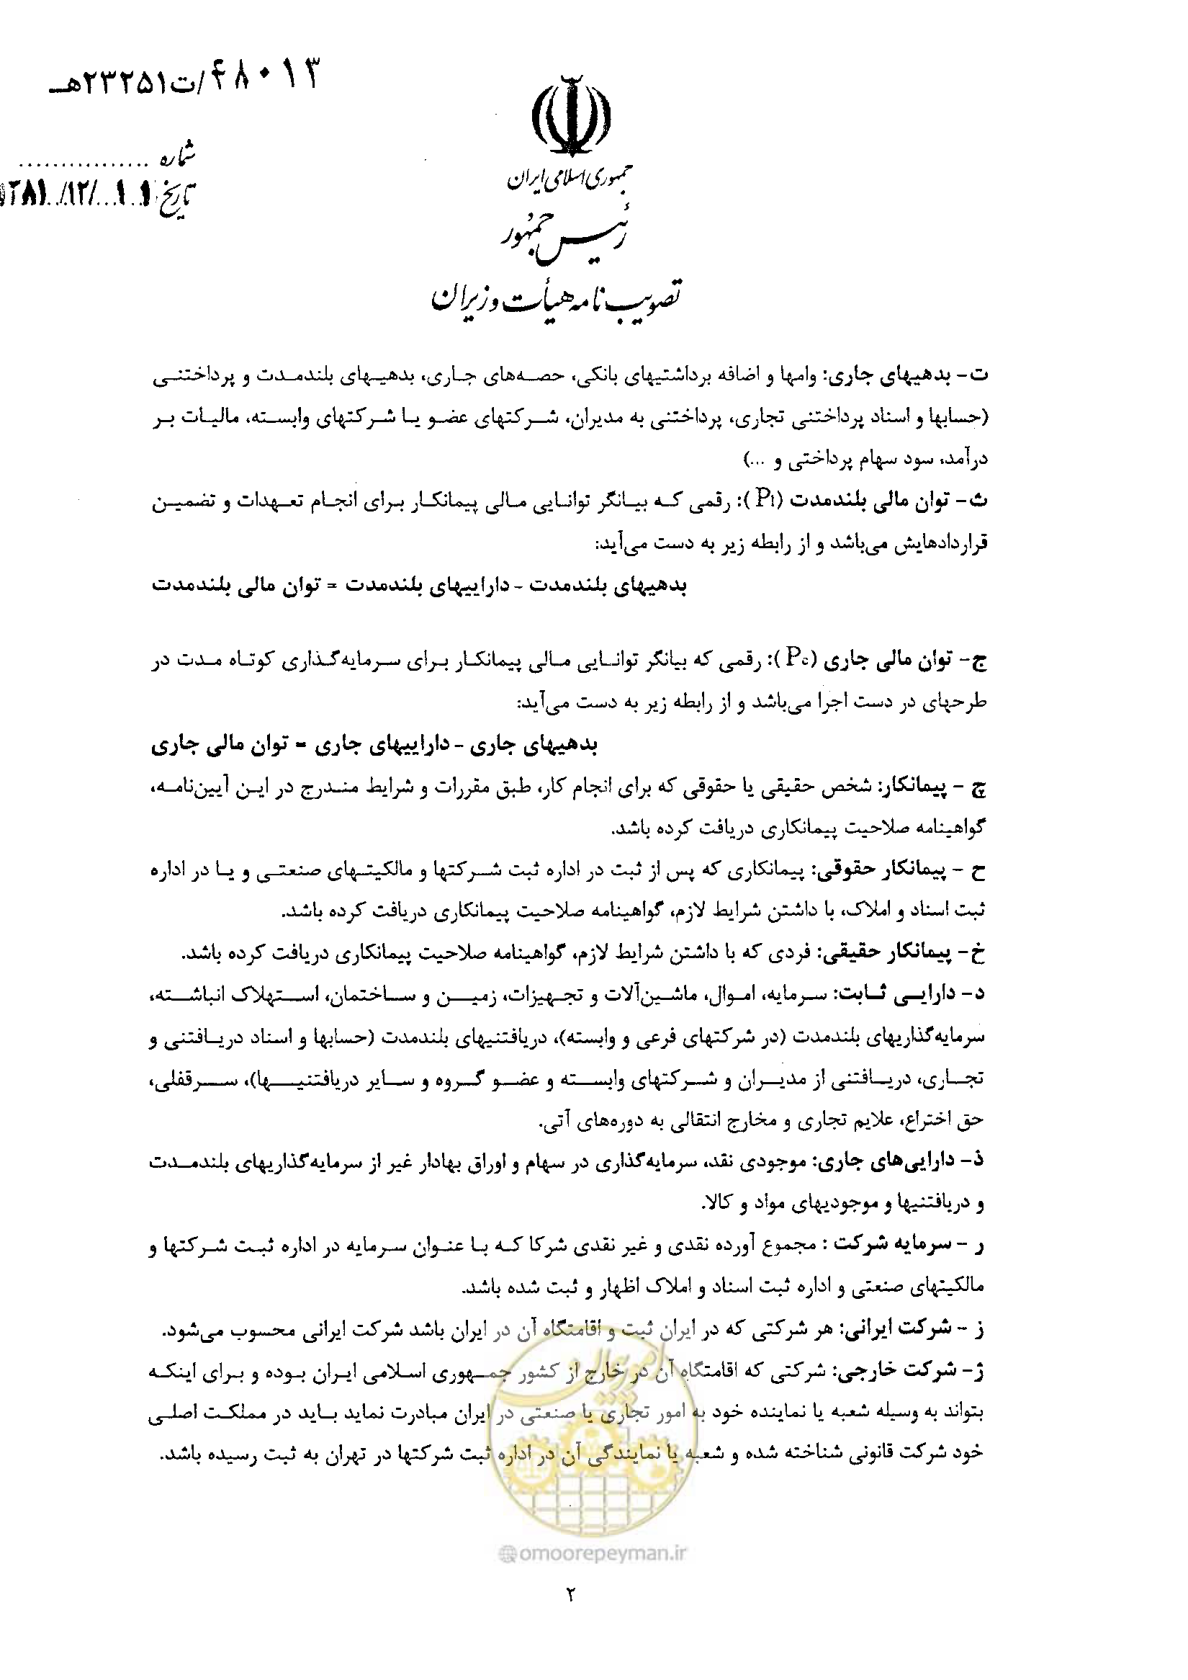 ۴۸۰۱۳/ت۲۳۲۵۱هـ
شماره ................
تاریخ ۱۳۸۱/۱۲/۱۱
جمهوری اسلامی ایران
رئیس جمهور
تصویب نامه هیأت وزیران
ت- بدهیهای جاری: وامها و اضافه برداشتیهای بانکی، حصه‌های جاری، بدهیهای بلندمدت و پرداختنی
(حسابها و اسناد پرداختنی تجاری، پرداختنی به مدیران، شرکتهای عضو یا شرکتهای وابسته، مالیات بر
درآمد، سود سهام پرداختی و ...)
ث- توان مالی بلندمدت (Pl): رقمی که بیانگر توانایی مالی پیمانکار برای انجام تعهدات و تضمین
قراردادهایش می‌باشد و از رابطه زیر به دست می‌آید:
بدهیهای بلندمدت - داراییهای بلندمدت = توان مالی بلندمدت
ج- توان مالی جاری (Pc): رقمی که بیانگر توانایی مالی پیمانکار برای سرمایه‌گذاری کوتاه مدت در
طرحهای در دست اجرا می‌باشد و از رابطه زیر به دست می‌آید:
بدهیهای جاری - داراییهای جاری = توان مالی جاری
چ - پیمانکار: شخص حقیقی یا حقوقی که برای انجام کار، طبق مقررات و شرایط مندرج در این آیین‌نامه،
گواهینامه صلاحیت پیمانکاری دریافت کرده باشد.
ح - پیمانکار حقوقی: پیمانکاری که پس از ثبت در اداره ثبت شرکتها و مالکیتهای صنعتی و یا در اداره
ثبت اسناد و املاک، با داشتن شرایط لازم، گواهینامه صلاحیت پیمانکاری دریافت کرده باشد.
خ- پیمانکار حقیقی: فردی که با داشتن شرایط لازم، گواهینامه صلاحیت پیمانکاری دریافت کرده باشد.
د- دارایی ثابت: سرمایه، اموال، ماشین‌آلات و تجهیزات، زمین و ساختمان، استهلاک انباشته،
سرمایه‌گذاریهای بلندمدت (در شرکتهای فرعی و وابسته)، دریافتنیهای بلندمدت (حسابها و اسناد دریافتنی و
تجاری، دریافتنی از مدیران و شرکتهای وابسته و عضو گروه و سایر دریافتنیها)، سرقفلی،
حق اختراع، علایم تجاری و مخارج انتقالی به دوره‌های آتی.
ذ- دارایی‌های جاری: موجودی نقد، سرمایه‌گذاری در سهام و اوراق بهادار غیر از سرمایه‌گذاریهای بلندمدت
و دریافتنیها و موجودیهای مواد و کالا.
ر - سرمایه شرکت : مجموع آورده نقدی و غیر نقدی شرکا که با عنوان سرمایه در اداره ثبت شرکتها و
مالکیتهای صنعتی و اداره ثبت اسناد و املاک اظهار و ثبت شده باشد.
ز - شرکت ایرانی: هر شرکتی که در ایران ثبت و اقامتگاه آن در ایران باشد شرکت ایرانی محسوب می‌شود.
ژ- شرکت خارجی: شرکتی که اقامتگاه آن در خارج از کشور جمهوری اسلامی ایران بوده و برای اینکه
بتواند به وسیله شعبه یا نماینده خود به امور تجاری یا صنعتی در ایران مبادرت نماید باید در مملکت اصلی
خود شرکت قانونی شناخته شده و شعبه یا نمایندگی آن در اداره ثبت شرکتها در تهران به ثبت رسیده باشد.
امور پیمان
@omoorepeyman.ir
۲